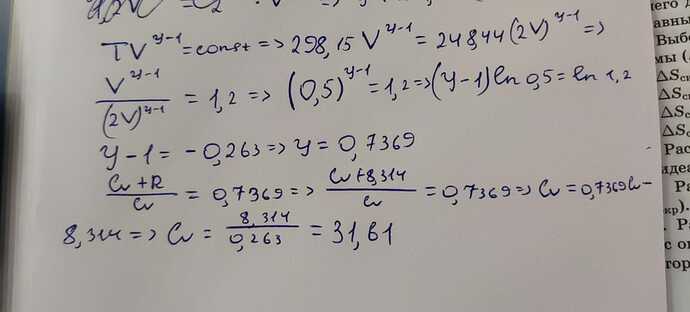 TV^{γ-1} = const => 298,15 V^{γ-1} = 248,44 (2V)^{γ-1} =>
V^{γ-1} / (2V)^{γ-1} = 1,2 => (0,5)^{γ-1} = 1,2 => (γ-1) ln 0,5 = ln 1,2
γ-1 = -0,263 => γ = 0,7369
Cv + R / Cv = 0,7369 => Cv + 8,314 / Cv = 0,7369 => Cv = 0,7369 Cv -
8,314 => Cv = 8,314 / 0,263 = 31,61
его
авны
Выбо
мы (
ΔS
ΔS
ΔS
ΔS
Рас
идеа
Ра
кр).
Р
с о
гор